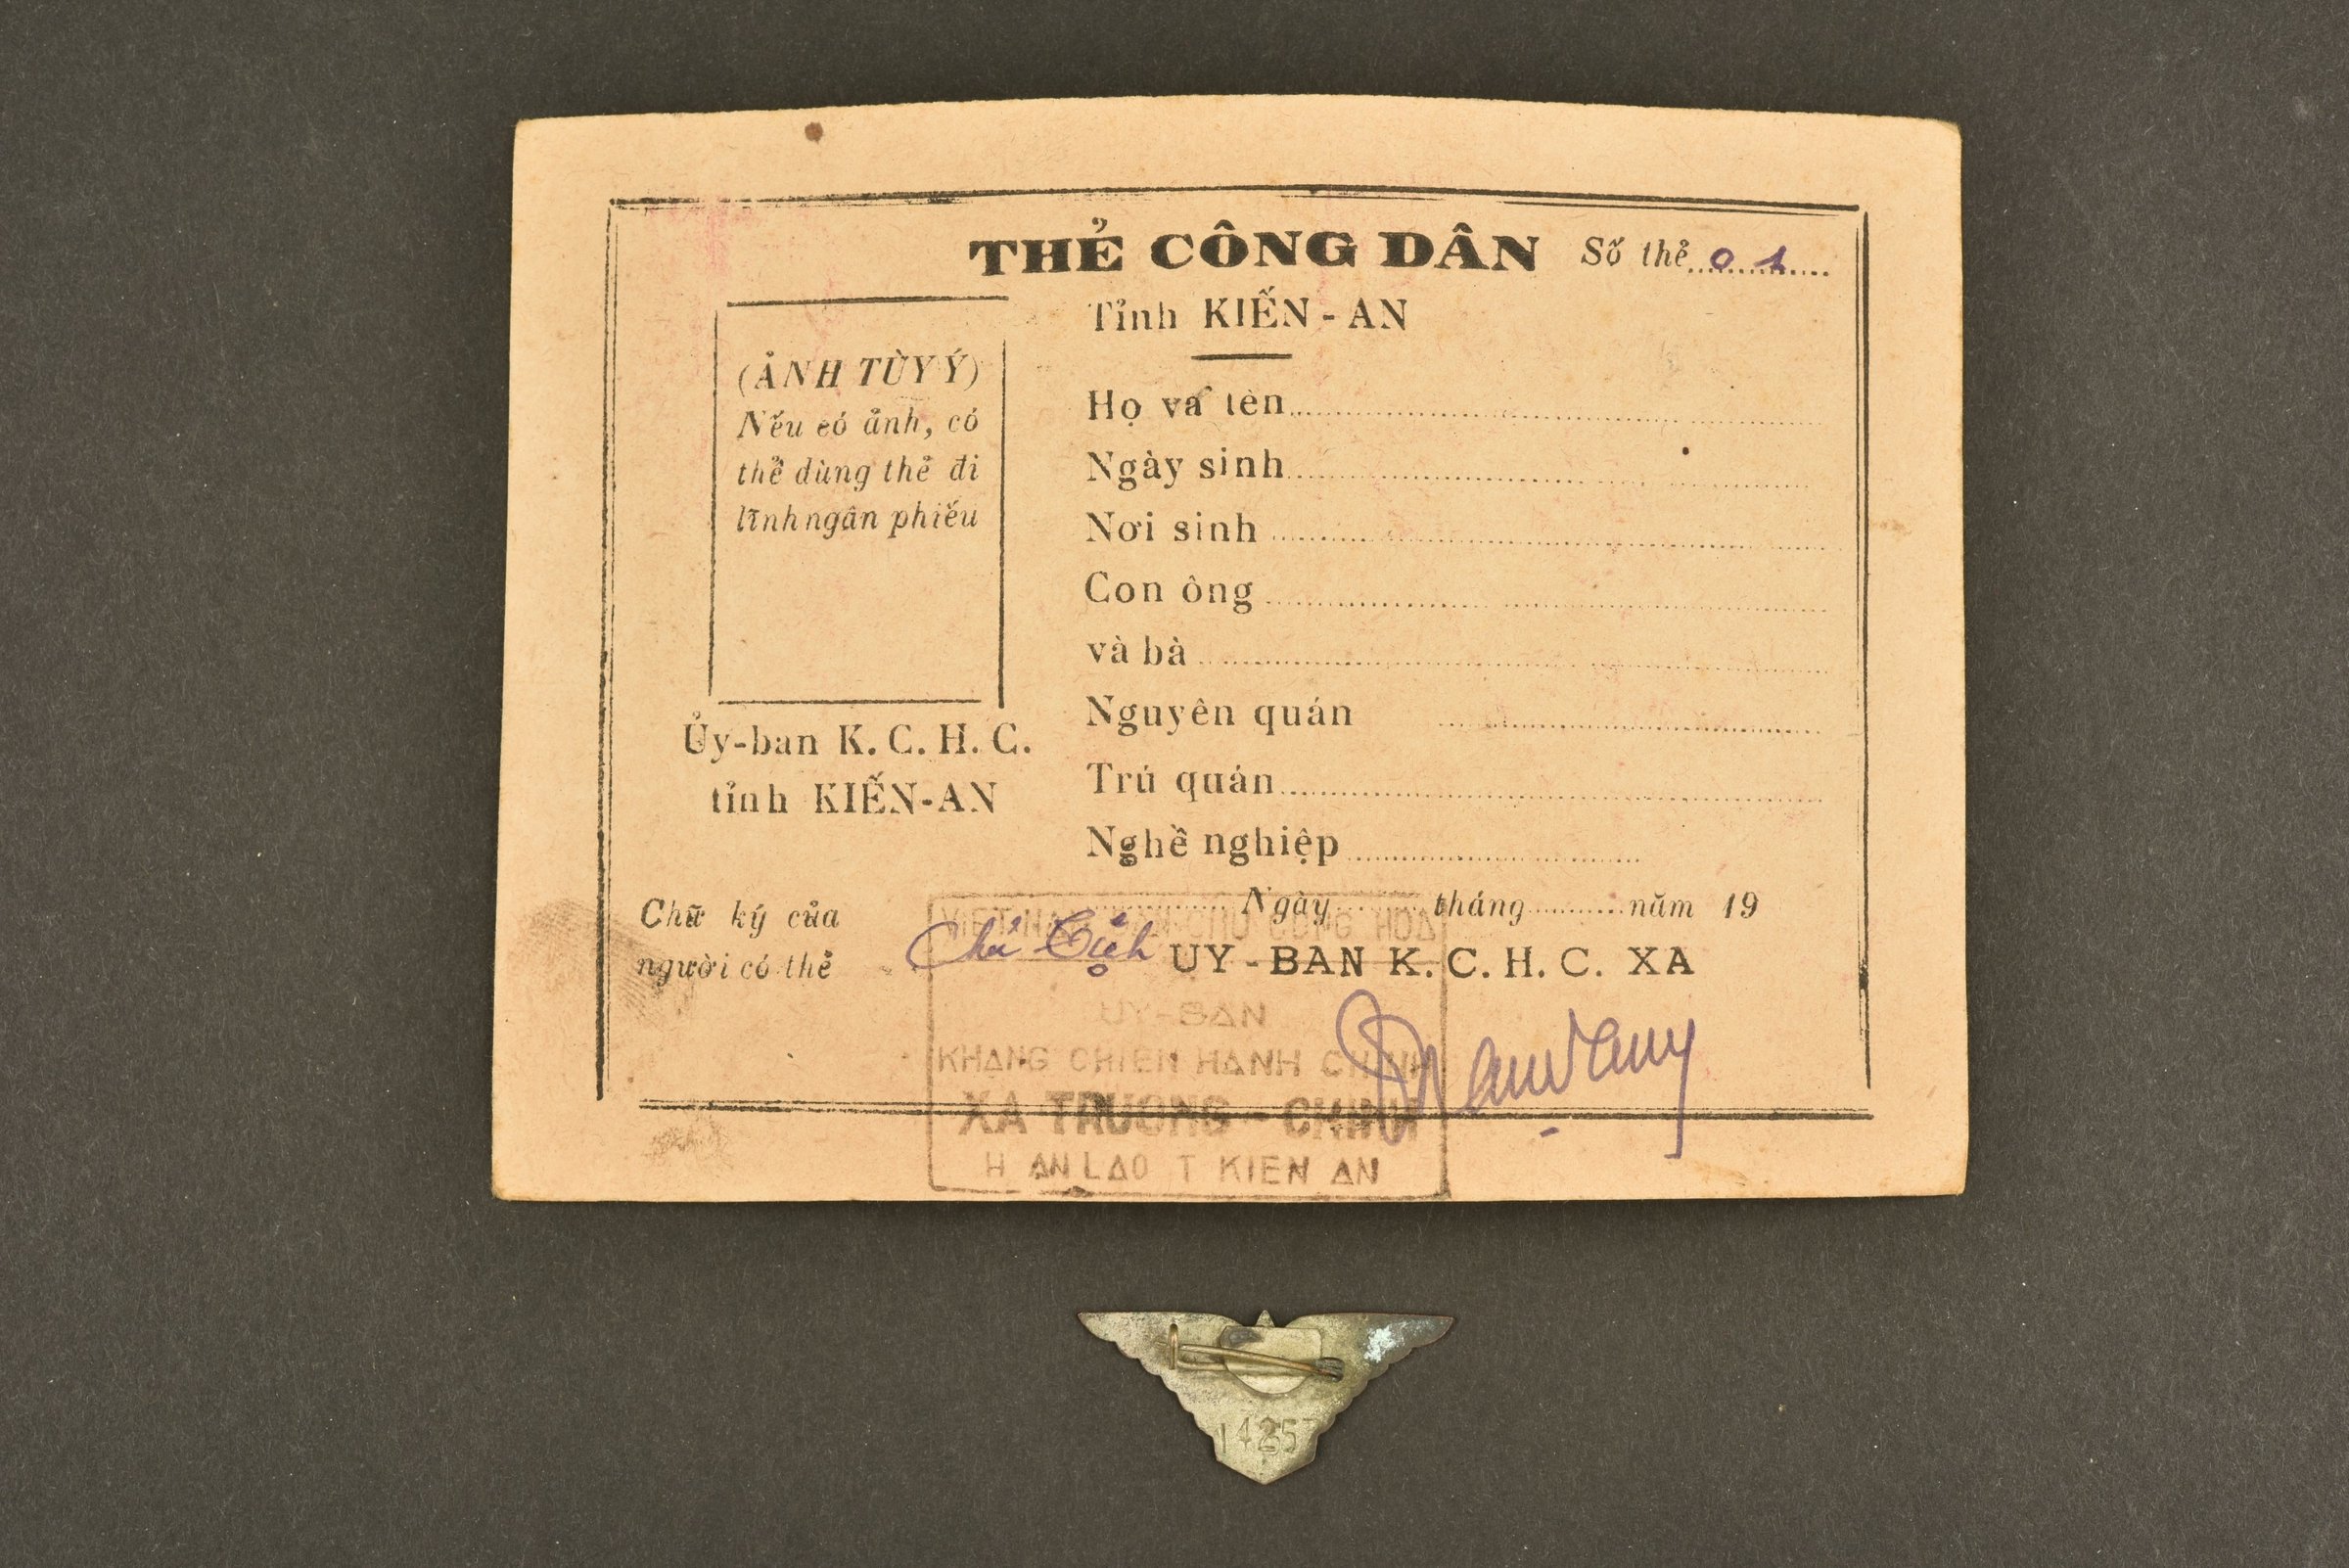 THẺ CÔNG DÂN Số thẻ 01
Tỉnh KIẾN - AN
(ẢNH TÙY Ý)
Nếu có ảnh, có
thể dùng thẻ đi
lĩnh ngân phiếu
Ủy-ban K. C. H. C.
tỉnh KIẾN-AN
Họ và tên
Ngày sinh
Nơi sinh
Con ông
và bà
Nguyên quán
Trú quán
Nghề nghiệp
Ngày tháng năm 19
Chữ ký của
người có thẻ
Chủ tịch UY - BAN K. C. H. C. XA
VIET-NAM DAN-CHU CONG HOA
UY-BAN
KHANG CHIEN HANH CHINH
XA TRUONG - CHINH
H AN LAO T KIEN AN